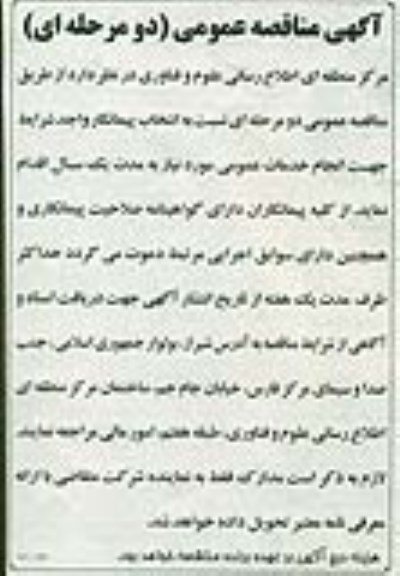 آگهی مناقصه عمومی (دو مرحله ای)
مرکز منطقه ای اطلاع رسانی علوم و فناوری در نظر دارد از طریق
مناقصه عمومی دو مرحله ای نسبت به انتخاب پیمانکار واجد شرایط
جهت انجام خدمات عمومی مورد نیاز به مدت یک سال اقدام
نماید. از کلیه پیمانکاران دارای گواهینامه صلاحیت پیمانکاری و
همچنین دارای سوابق اجرایی مرتبط دعوت می گردد حداکثر
ظرف مدت یک هفته از تاریخ انتشار آگهی جهت دریافت اسناد و
آگاهی از شرایط مناقصه به آدرس شیراز، بولوار جمهوری اسلامی، جنب
صدا و سیمای مرکز فارس، خیابان جام جم، ساختمان مرکز منطقه ای
اطلاع رسانی علوم و فناوری، طبقه هفتم، امور مالی مراجعه نمایند.
لازم به ذکر است مدارک فقط به نماینده شرکت متقاضی با ارائه
معرفی نامه معتبر تحویل داده خواهد شد.
هزینه درج آگهی بر عهده برنده مناقصه خواهد بود.